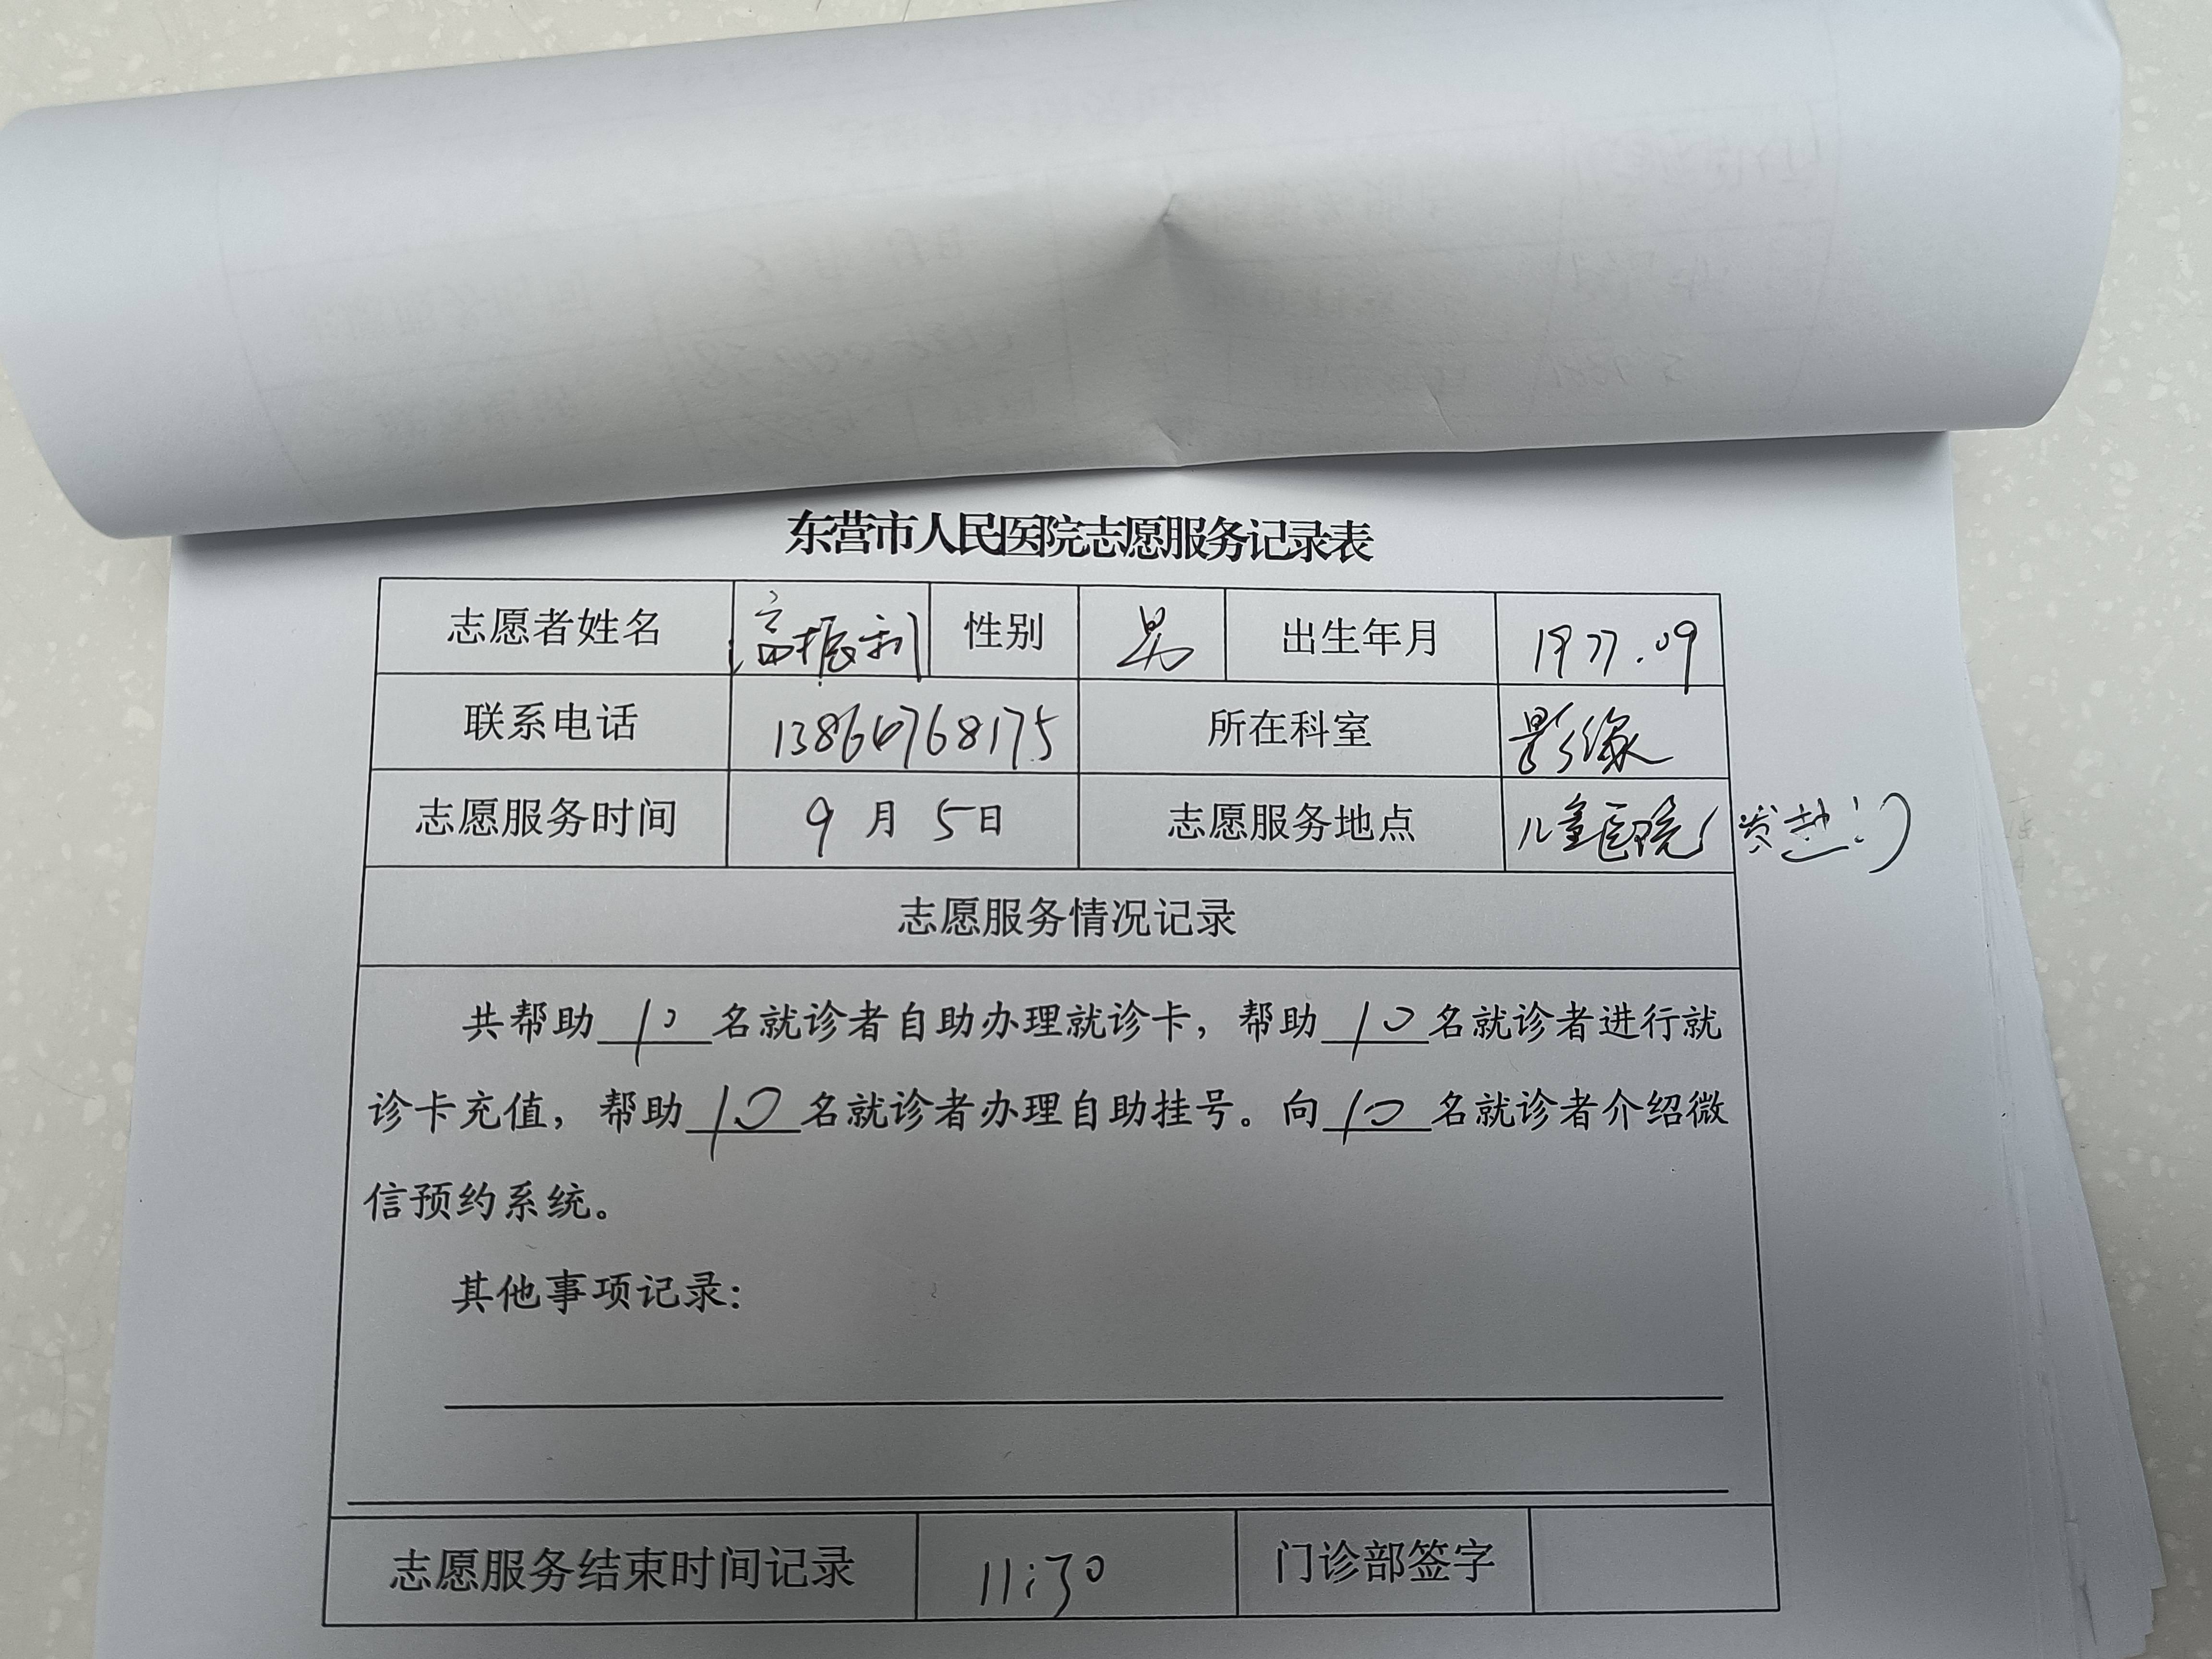 东营市人民医院志愿服务记录表
志愿者姓名 高振利 性别 男 出生年月 1977.09
联系电话 13864768175 所在科室 影像
志愿服务时间 9月5日 志愿服务地点 儿童医院(发热门)
志愿服务情况记录
共帮助10名就诊者自助办理就诊卡，帮助10名就诊者进行就
诊卡充值，帮助10名就诊者办理自助挂号。向10名就诊者介绍微
信预约系统。
其他事项记录：
志愿服务结束时间记录 11:30 门诊部签字